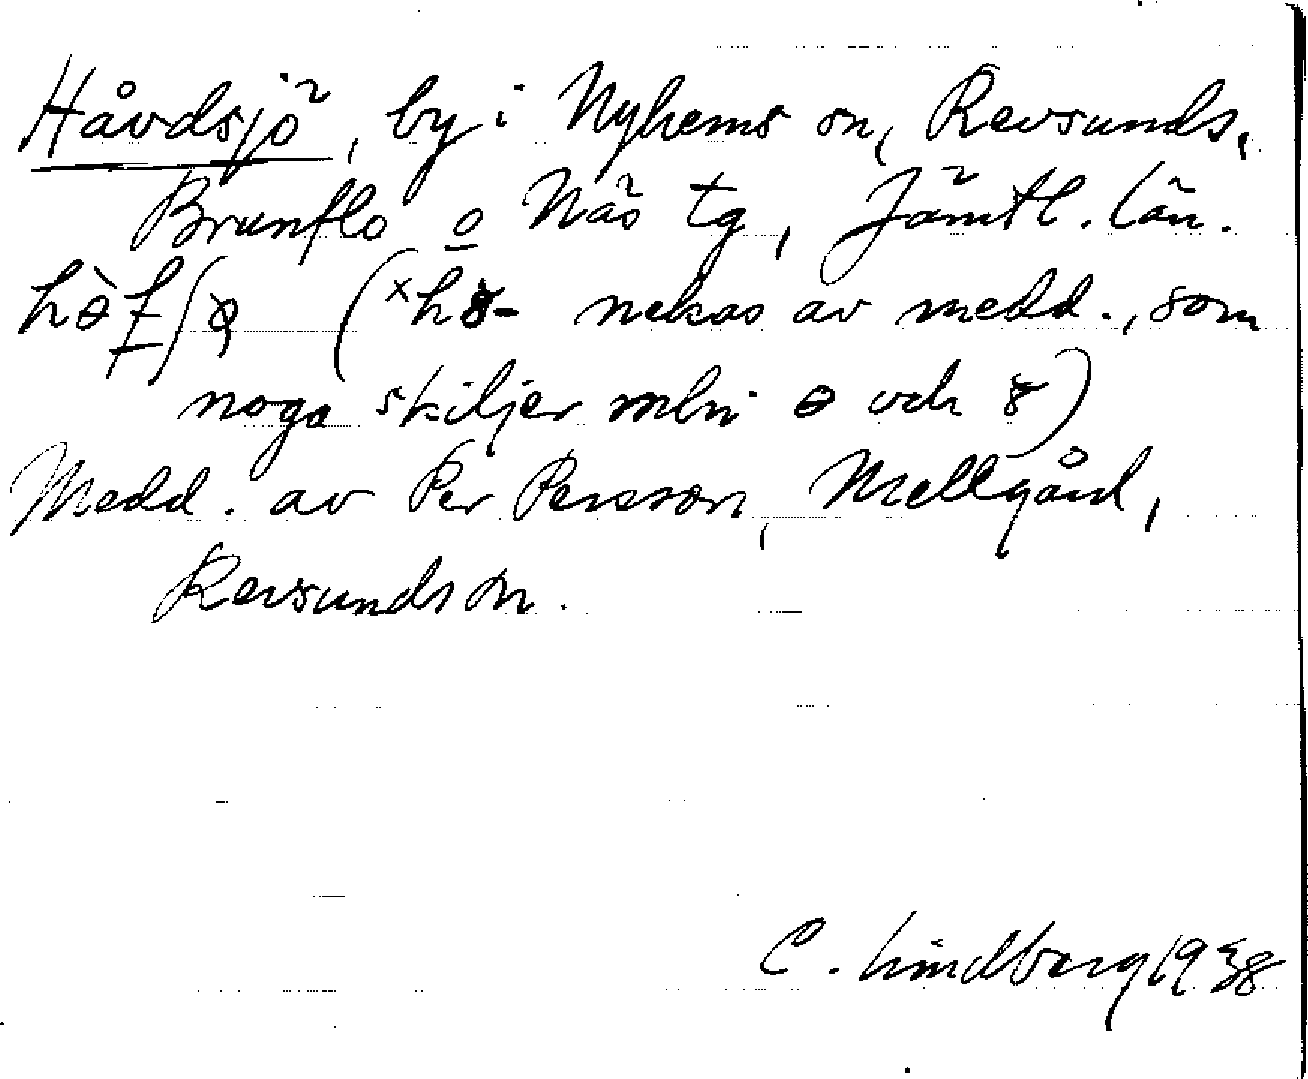 Håvdsjö, by i Nyhems sn, Revsunds,
Brunflo o Näs tg, Jämtl. län.
hɵ̀fʃꝋ (ˣh8- nekas av medd., som
noga skiljer mln ɵ och 8)
Medd. av Per Persson, Mellgård,
Revsunds sn.
C. Lindberg 1938